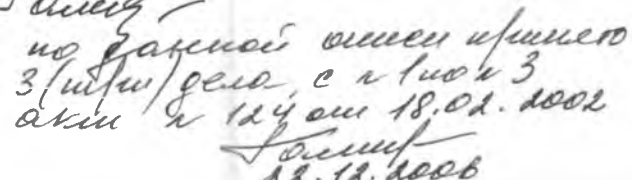 по данной описи принято
3 /три/ дела, с № 1 по № 3
акт № 124 от 18.02.2002
22.12.2006